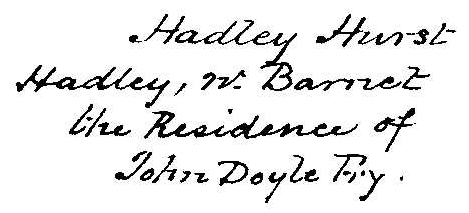 Hadley Hurst
Hadley, Nr. Barnet
the Residence of
John Doyle Fry.